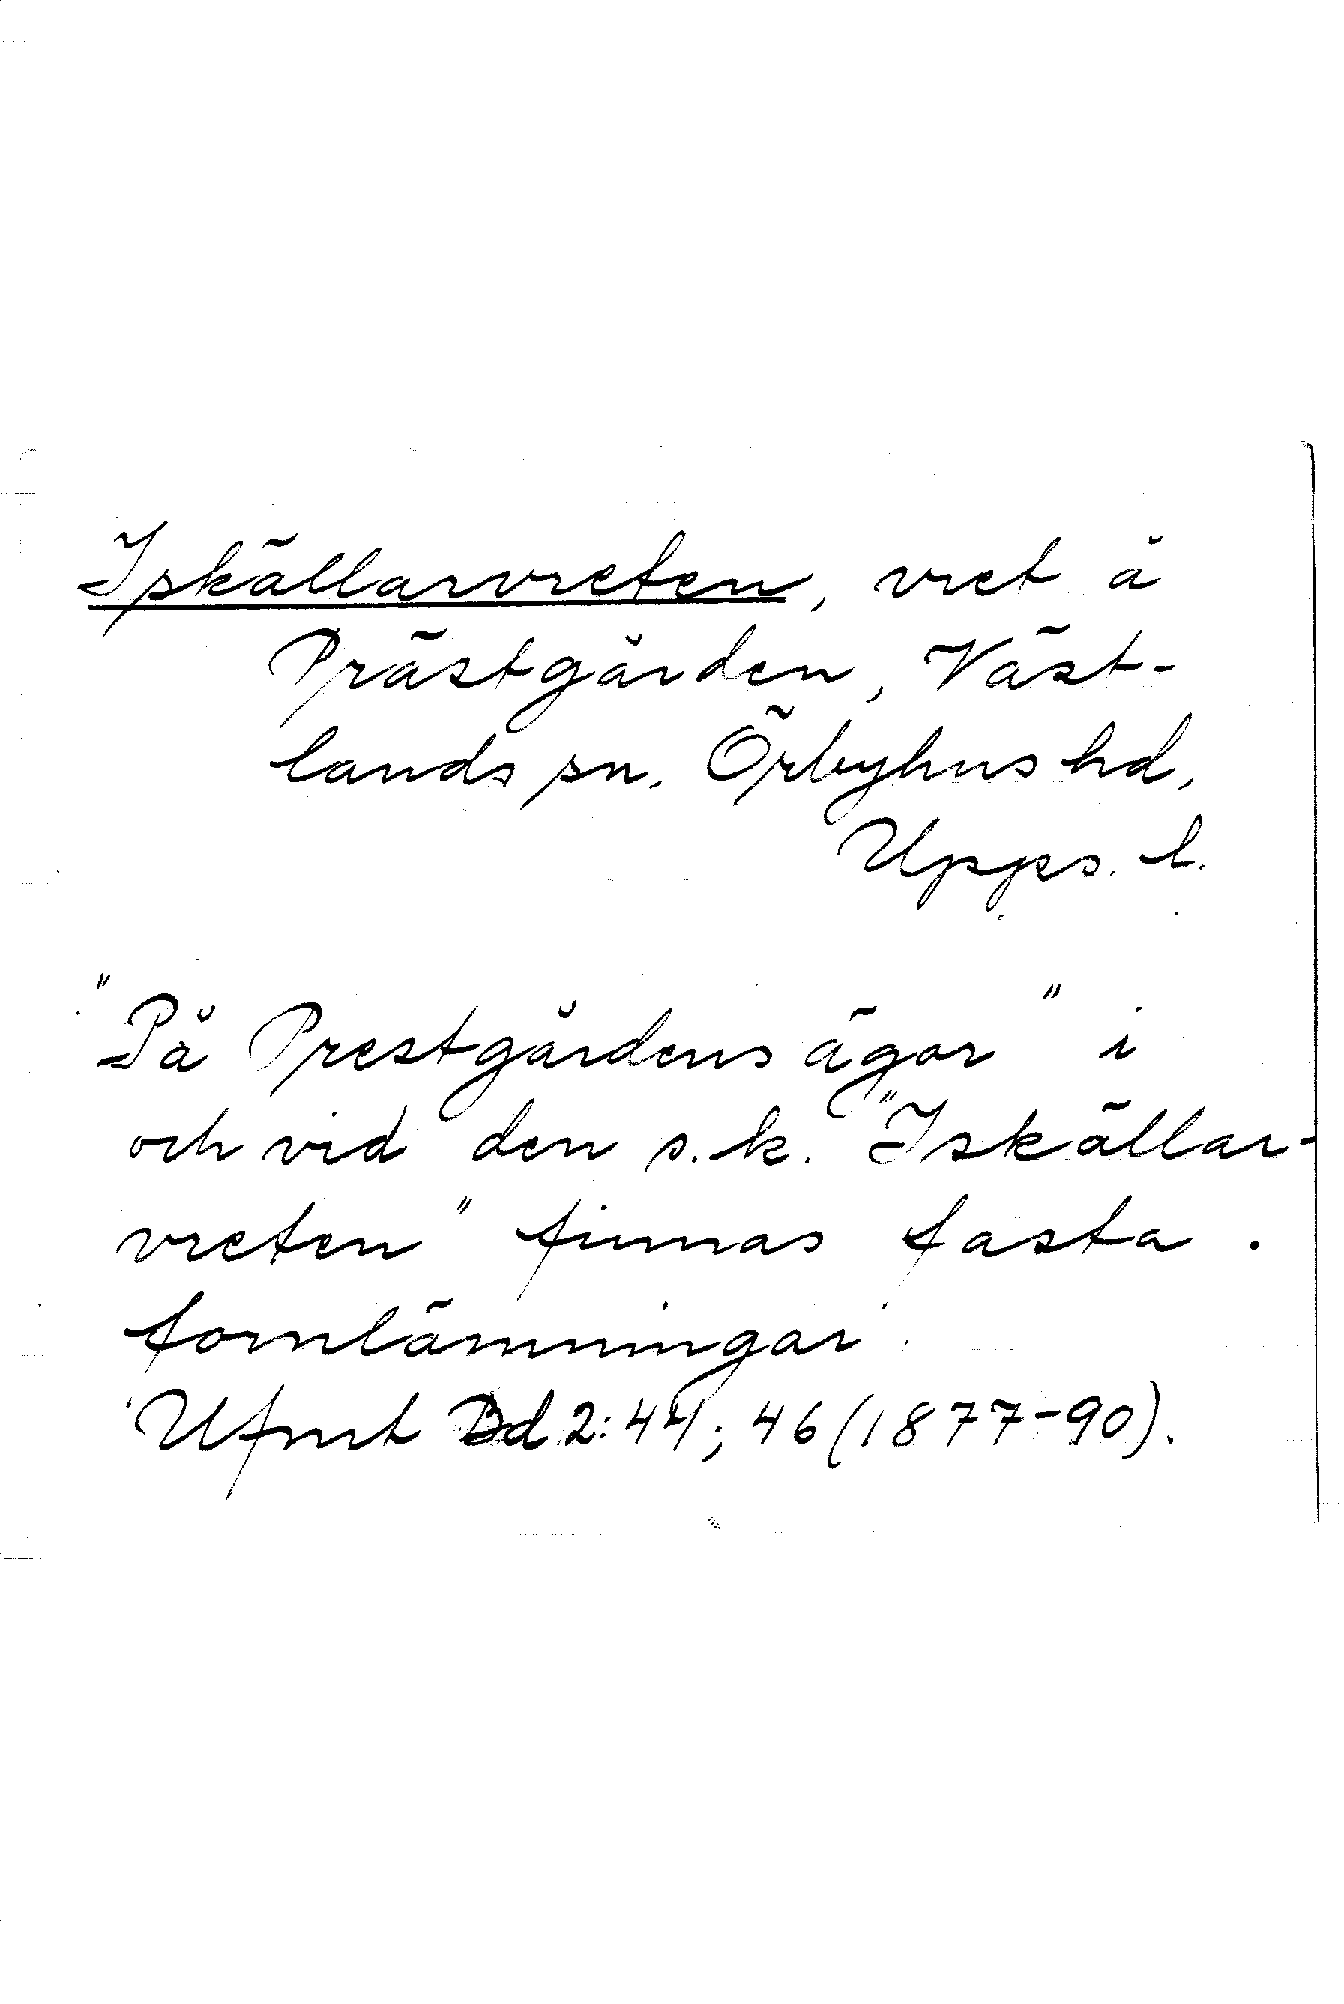 Iskällarvreten, vret å
Prästgården, Väst-
lands sn. Örbyhus hd,
Upps. l.
"På Prestgårdens ägor" i
och vid den s.k. "Iskällar-
vreten" finnas fasta
fornlämningar.
Ufmt Bd 2:44; 46 (1877-90).